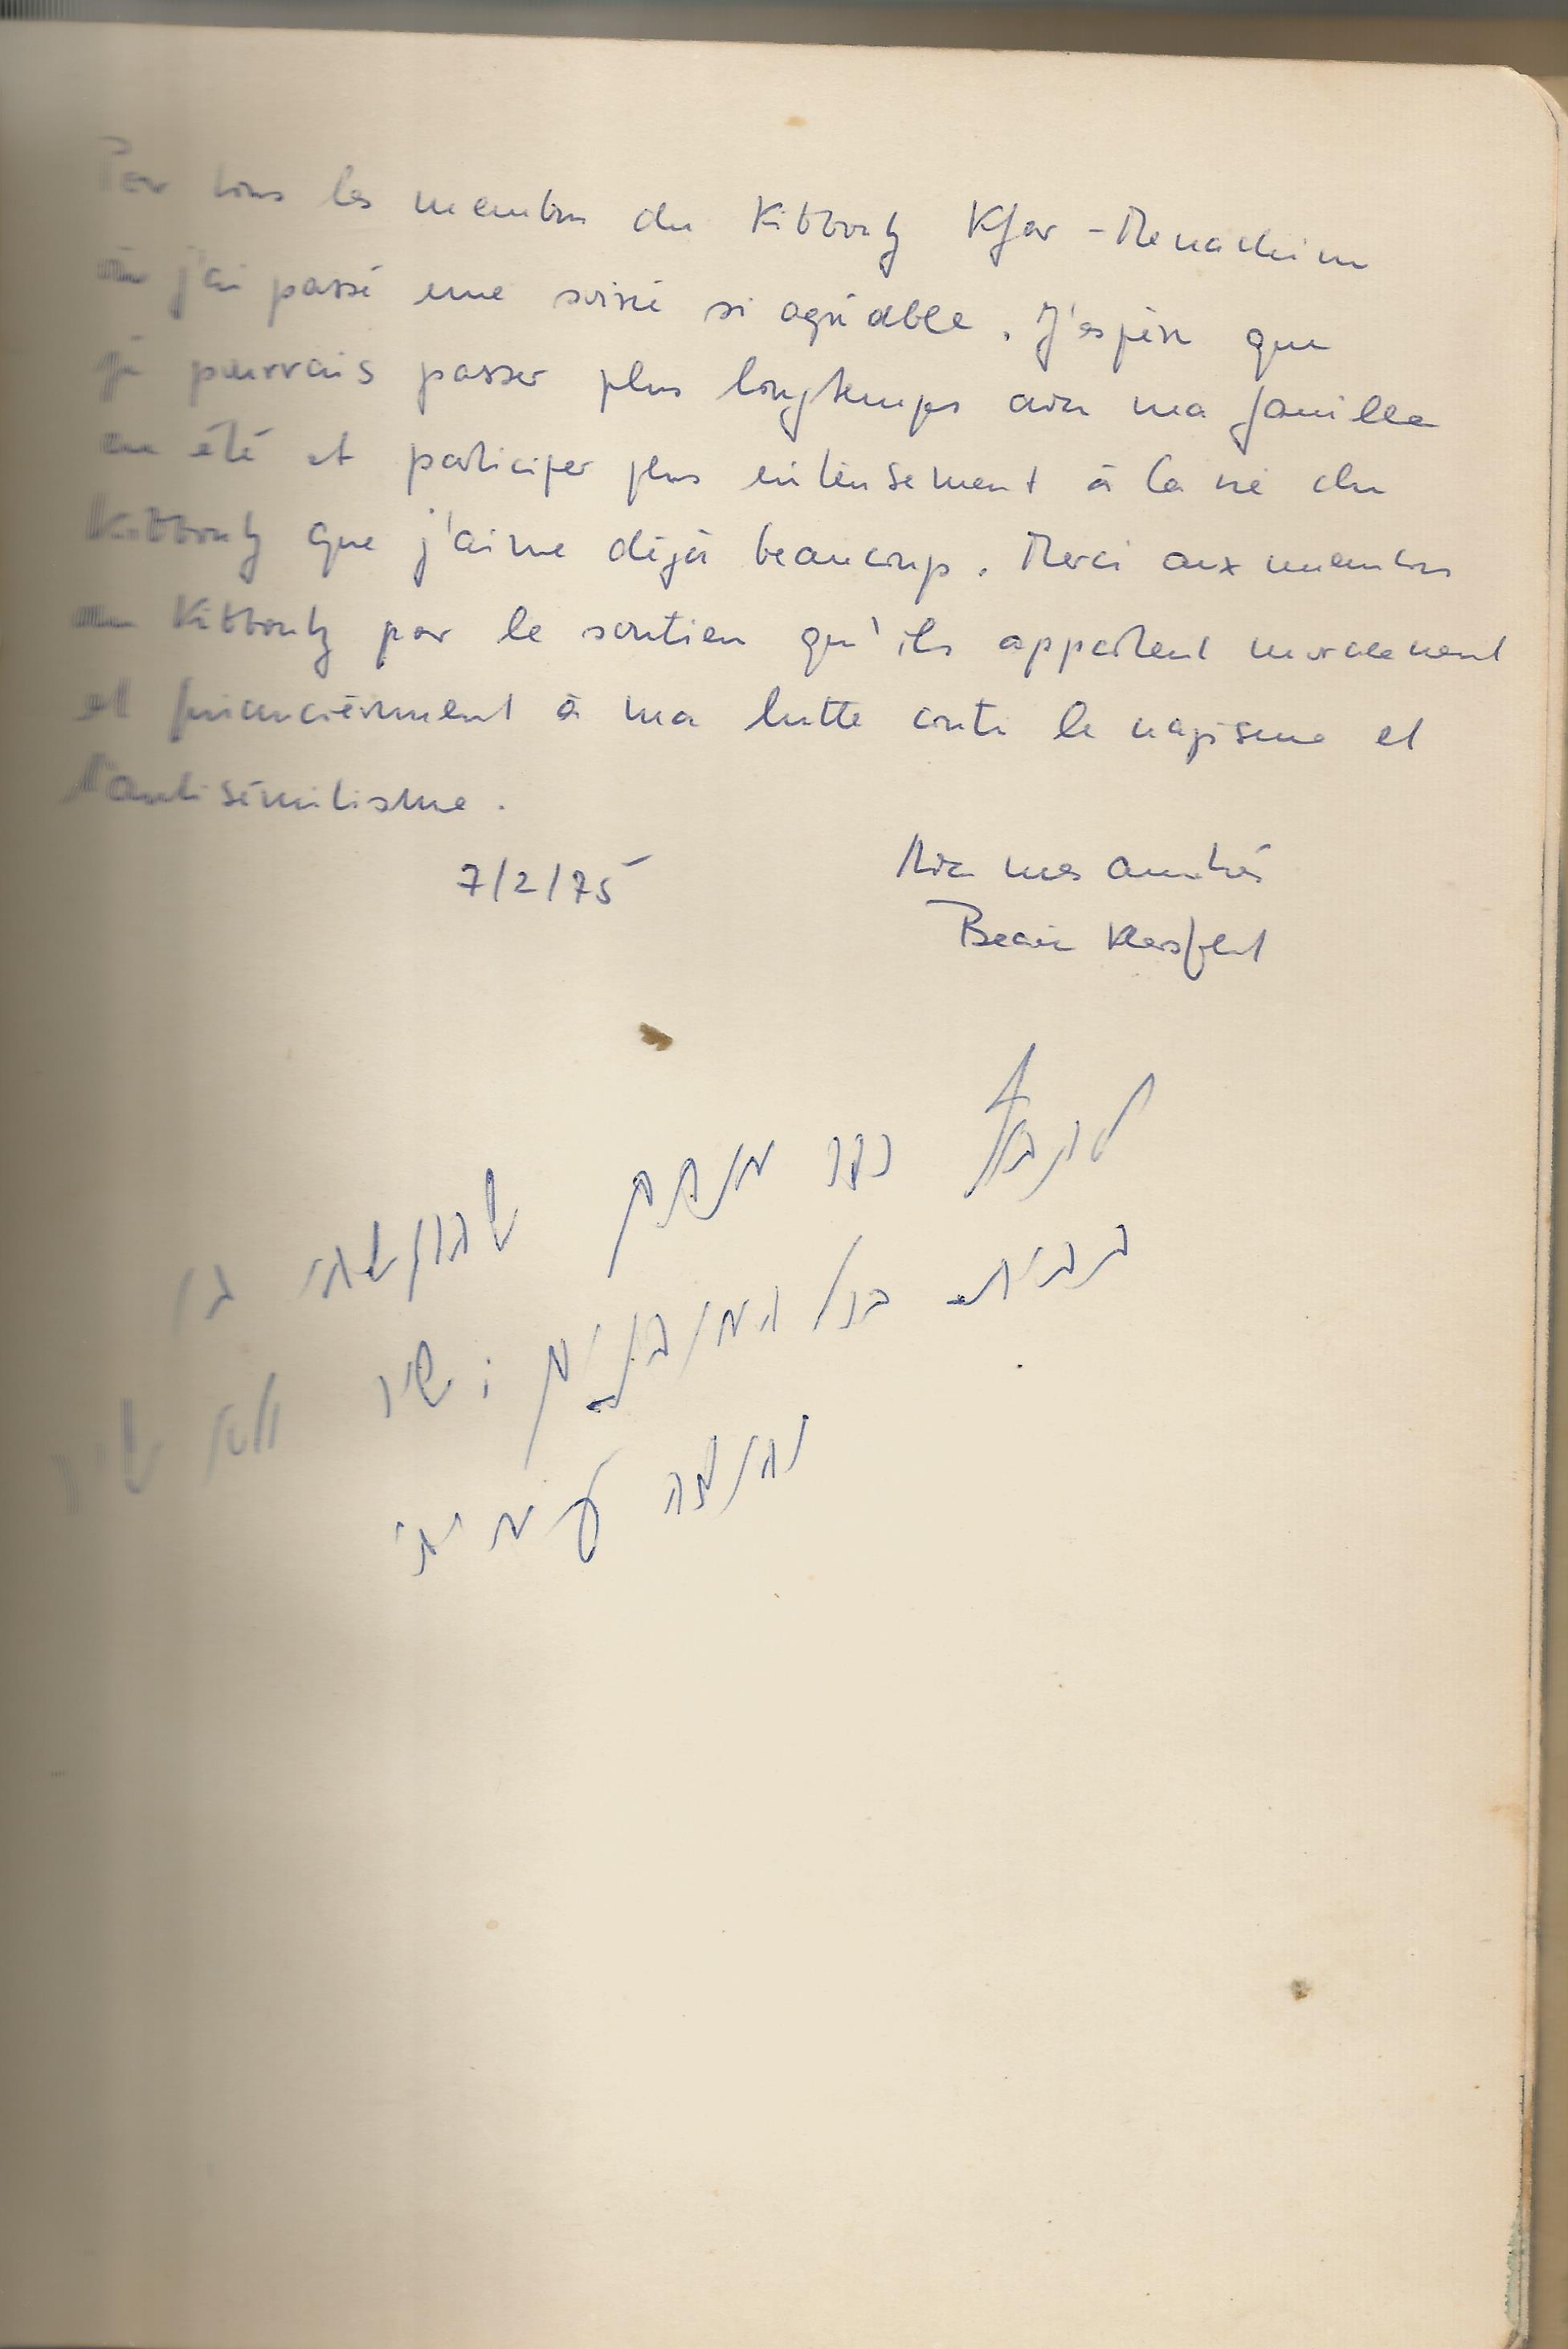 Pour tous les membres du Kibboutz Kfar-Menachim
où j'ai passé une soirée si agréable. J'espère que
je pourrais passer plus longtemps avec ma famille
en été et participer plus intensement à la vie du
Kibboutz que j'aime déjà beaucoup. Merci aux membres
du Kibboutz par le soutien qu'ils apportent moralement
et financièrement à ma lutte contre le nazisme et
l'antisémitisme.
7/2/75
Avec mes amitiés
Beate Klarsfeld
לקיבוץ כפר מנחם שהרגשתי בו
בבית בכל המובנים; שיר ולא שיר
נחמה